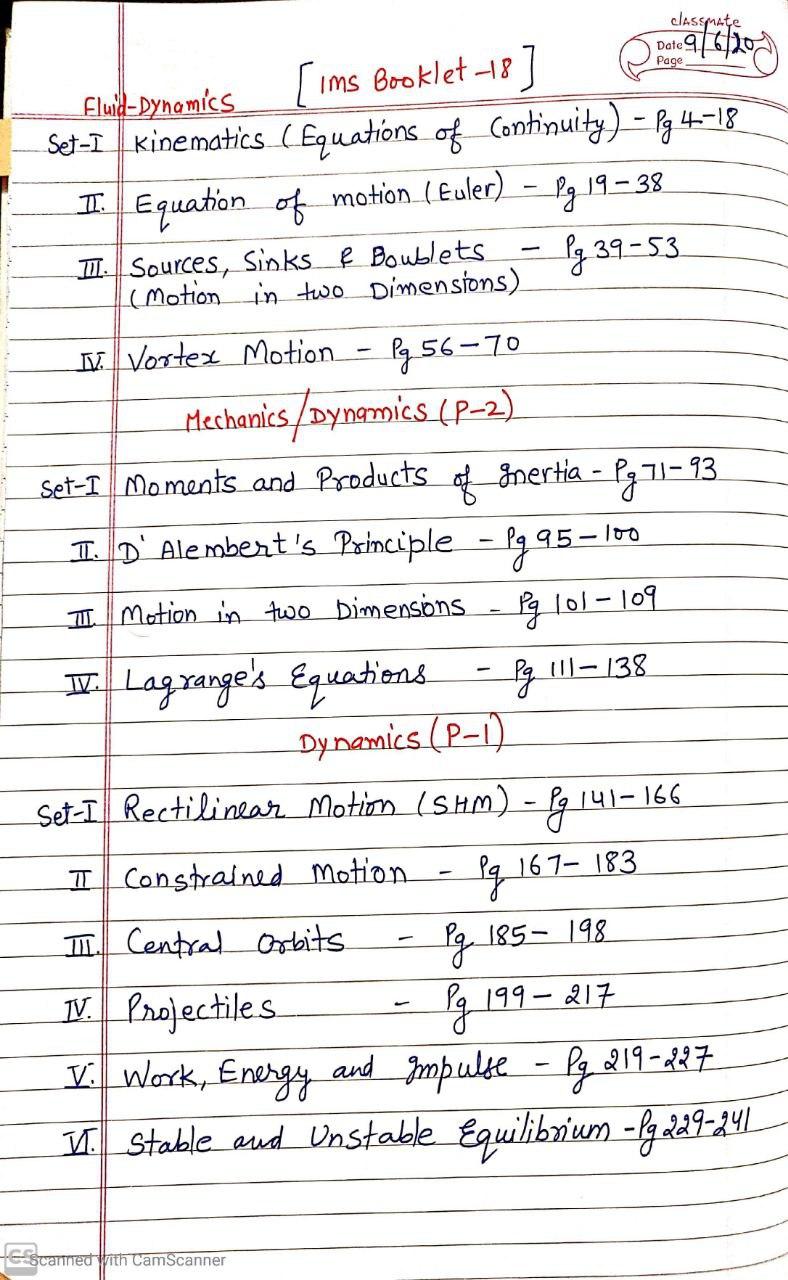 classmate
Date 9/6/20
Page
[IMS Booklet-18]
Fluid-Dynamics
Set-I Kinematics (Equations of Continuity) - Pg 4-18
II. Equation of motion (Euler) - Pg 19-38
III. Sources, Sinks & Doublets - Pg 39-53
(Motion in two Dimensions)
IV. Vortex Motion - Pg 56-70
Mechanics/Dynamics (P-2)
Set-I Moments and Products of Inertia - Pg 71-93
II. D'Alembert's Principle - Pg 95-100
III Motion in two Dimensions - Pg 101-109
IV. Lagrange's Equations - Pg 111-138
Dynamics (P-1)
Set-I Rectilinear Motion (SHM) - Pg 141-166
II Constrained Motion - Pg 167-183
III. Central Orbits - Pg 185-198
IV. Projectiles - Pg 199-217
V. Work, Energy and Impulse - Pg 219-227
VI. Stable and Unstable Equilibrium - Pg 229-241
CS Scanned with CamScanner